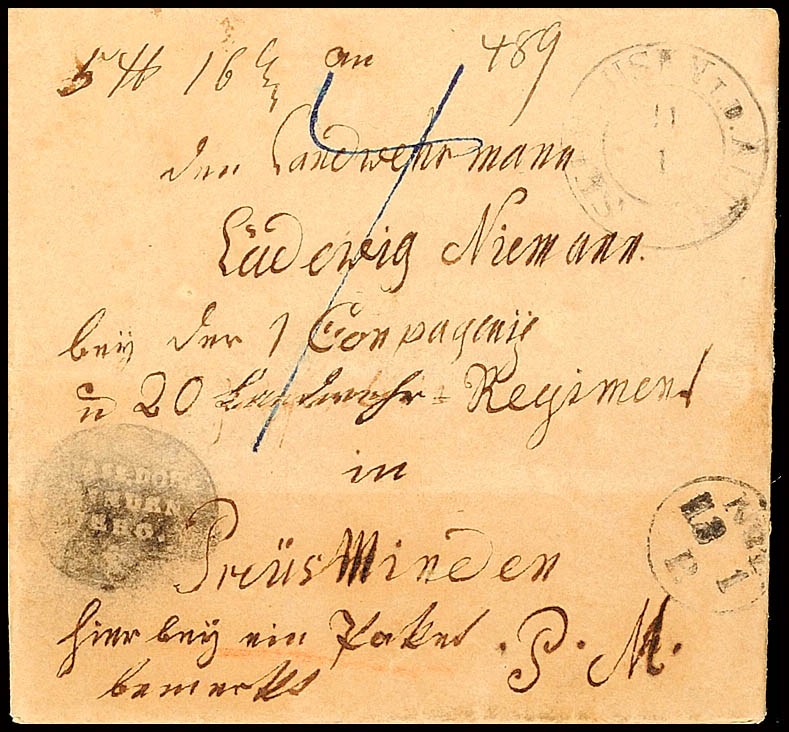 5 ℔ 16 an 489
den Landwehrmann
Lüdewig Niemann.
bey der 1 Conpagniy
20 Landwehr = Regiment
in
Preüs Minden
hier bey ein Paket . P. M.
bemerkt